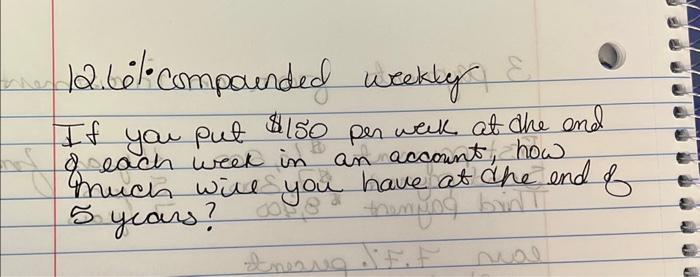 12.6% compounded weekly
If you put $150 per week at the end
of each week in an account, how
much will you have at the end of
5 years?